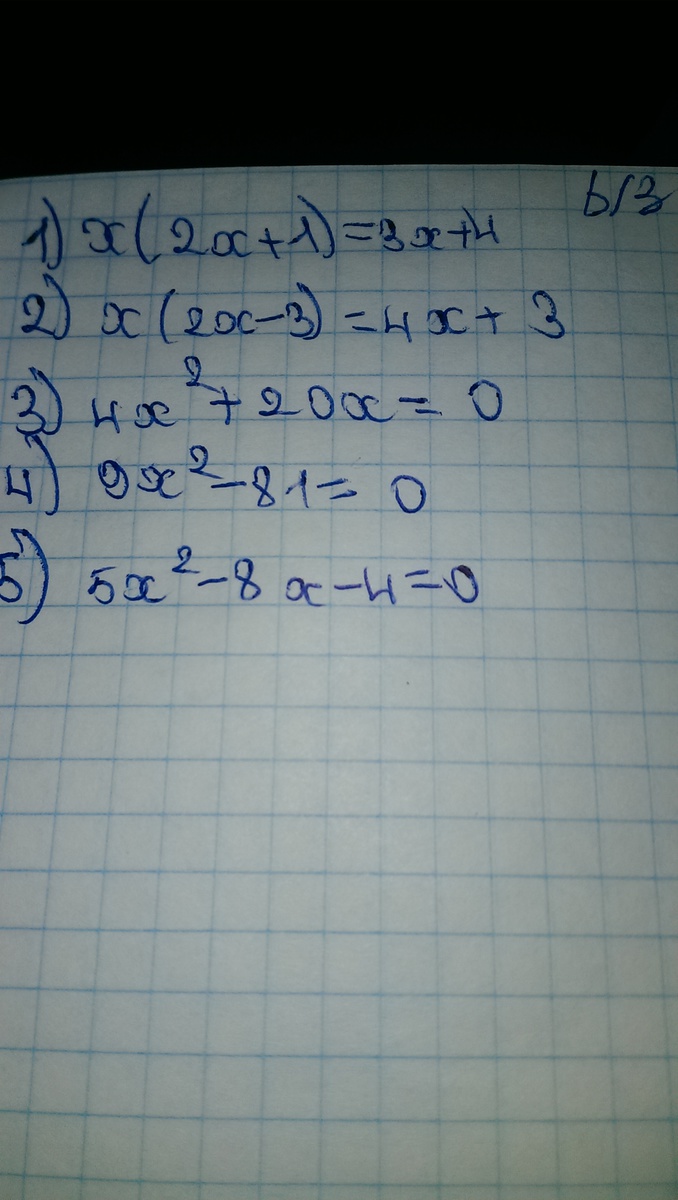 б/з
1) x(2x+1)=3x+4
2) x(2x-3)=4x+3
3) 4x²+20x=0
4) 9x²-81=0
5) 5x²-8x-4=0